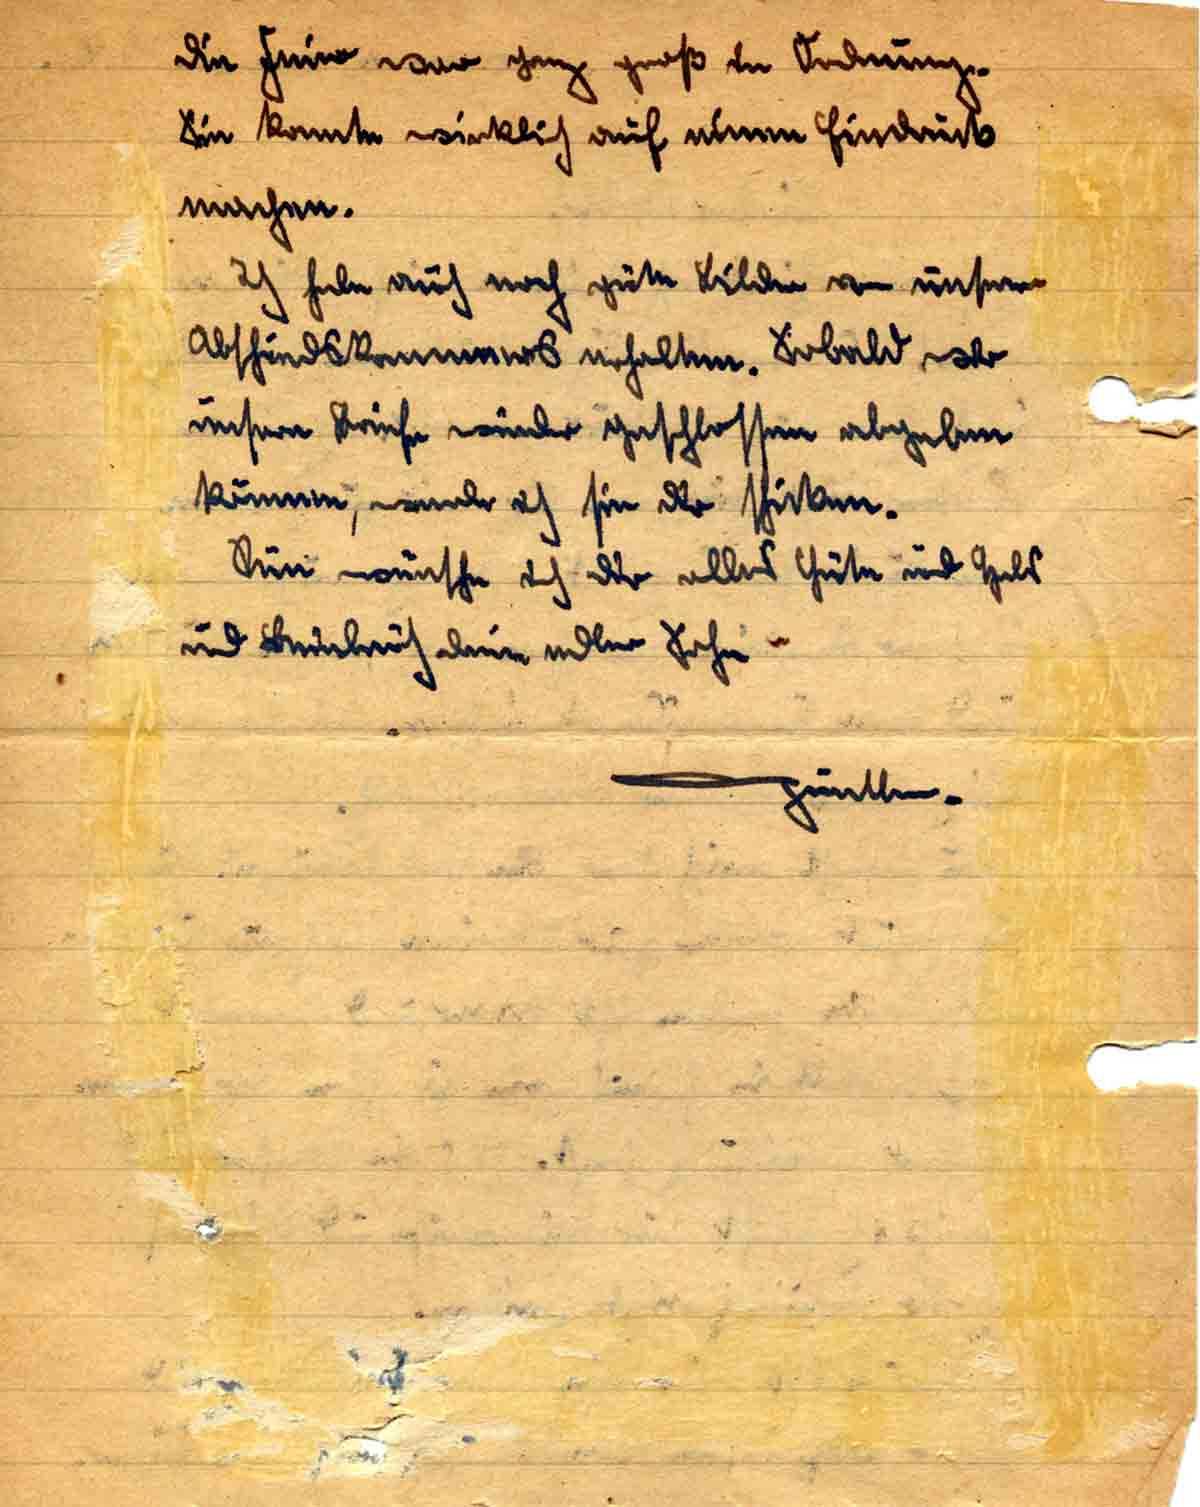 die Feier war ganz groß in Ordnung.
Sie konnte wirklich auf einen Eindruck
machen.
Ich habe auch noch gute Bilder von unserem
Abschiedskommers erhalten. Sobald wir
unsere Briefe wieder geschlossen abgeben
können, werde ich sie dir schicken.
Nun wünsche ich dir alles Gute und
und dein edler Sohn
Günther.